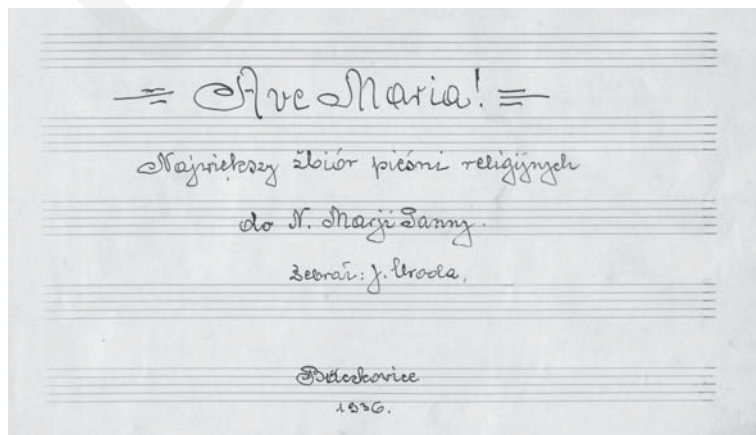 = Ave Maria! =
Największy zbiór pieśni religijnych
do N. Marji Panny.
Zebrał: J. Uroda.
Buczkowice
1936.